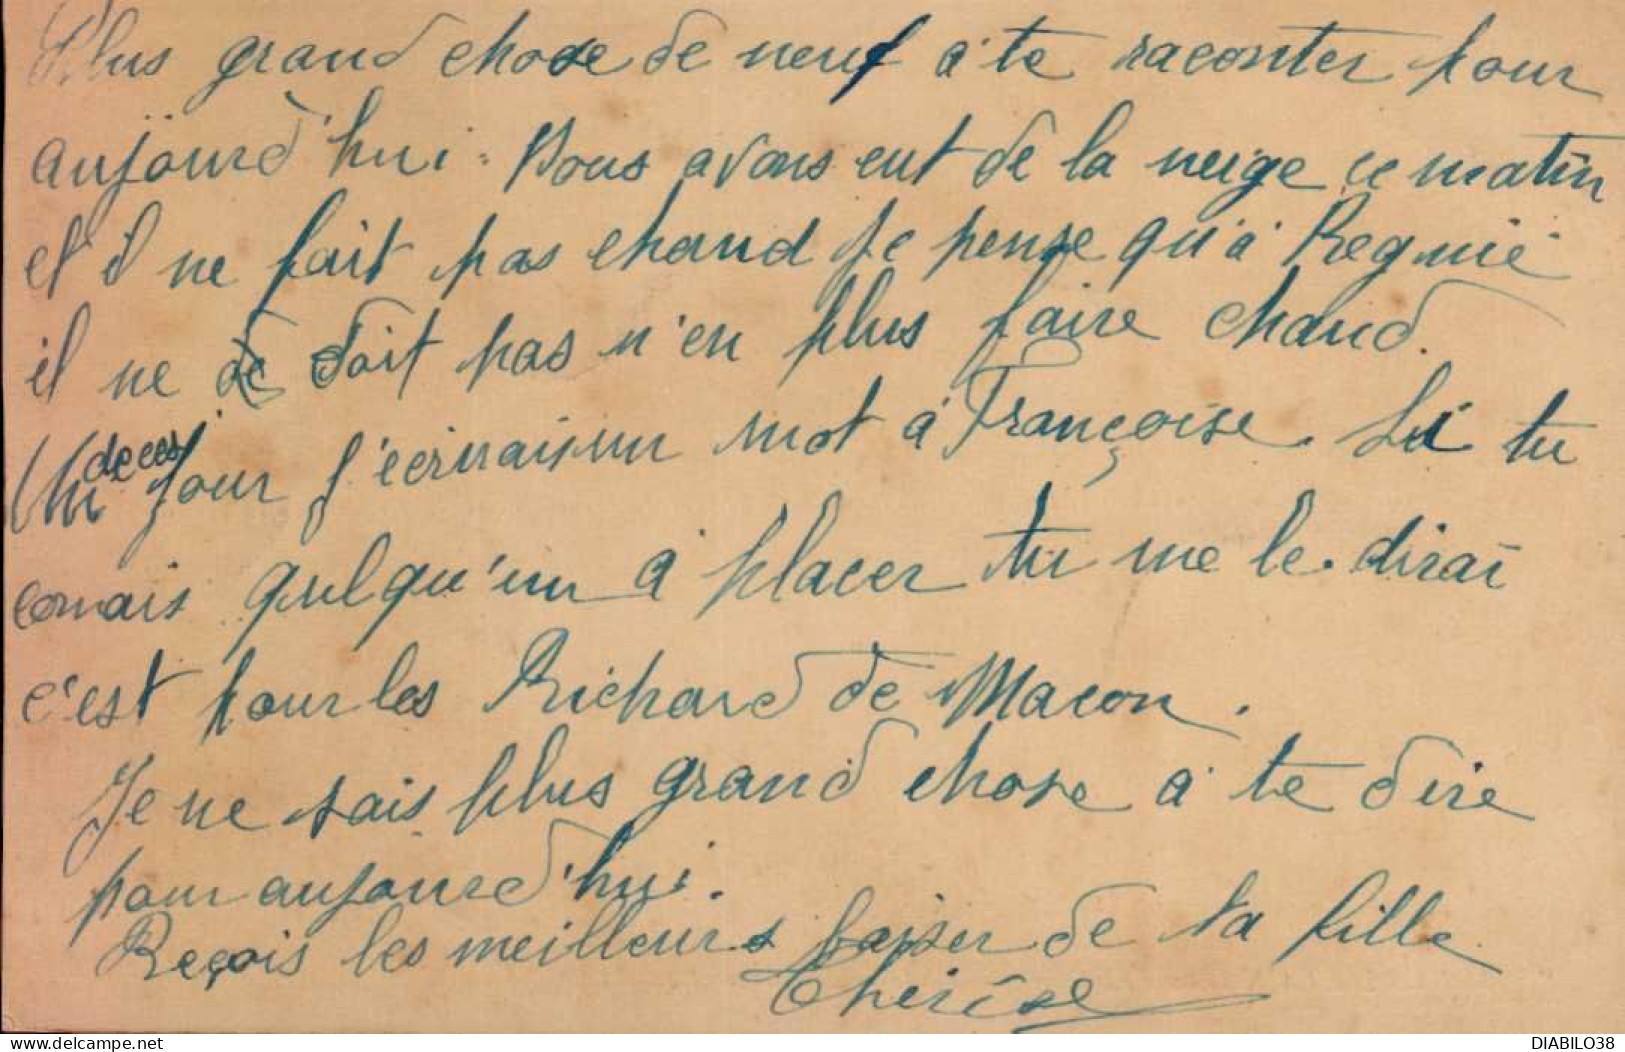 Plus grand chose de neuf à te raconter pour
aujourd'hui. Nous avons eut de la neige ce matin
et il ne fait pas chaud je pense qu'à Regnié
il ne doit pas n'en plus faire chaud.
Un de ces jour j'écriraisun mot à Françoise. Si tu
connais quelqu'un à placer tu me le dirai
c'est pour les Richard de Macon.
Je ne sais plus grand chose à te dire
pour aujourd'hui.
Reçois les meilleurs baiser de ta fille
Thérèse
www.delcampe.net
DIABILO38